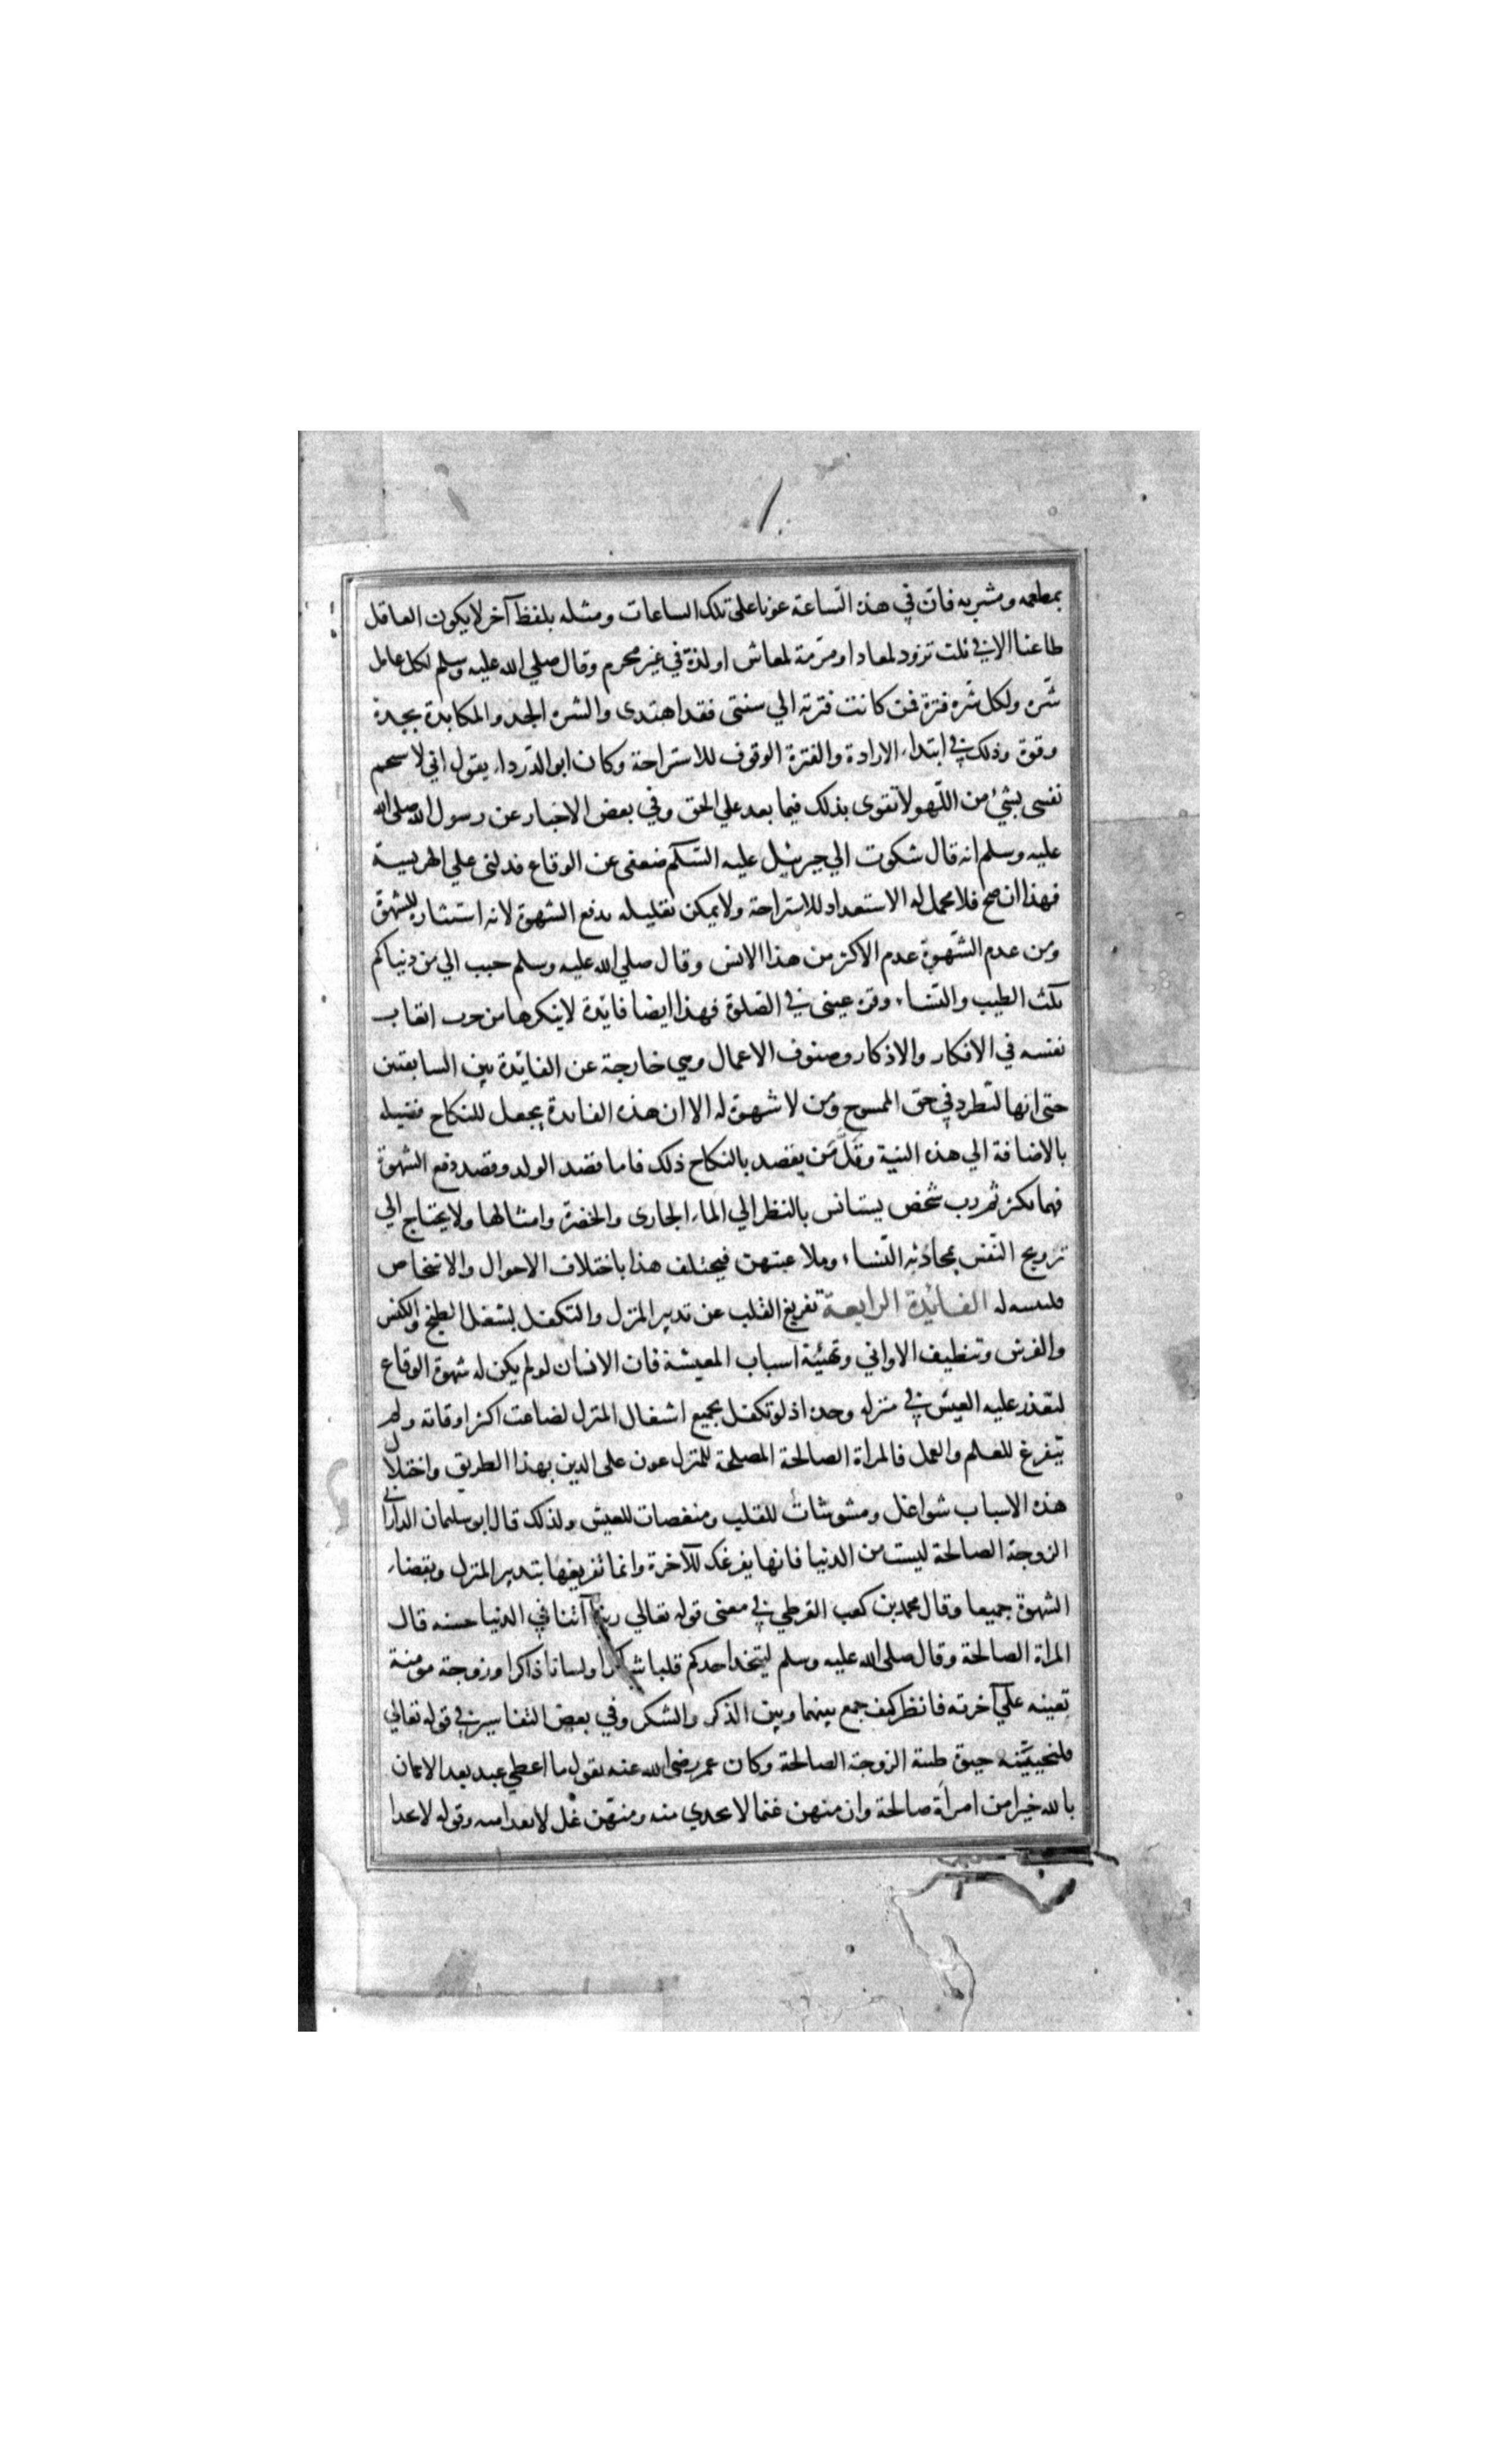 بمطعمه ومشربه فان في هذه السّاعة عونا على تلك الساعات ومثله بلفظ آخر لا يكون العاقل
طاعنا الا في ثلث تزود لمعاد او مرّمة لمعاش او لذة في غير محرم وقال صلي الله عليه وسلم لكل عامل
شّره ولكل شّره فترة فمن كانت فترته الي سنتى فقد اهتدى والشره الجد والمكابدة بجدة
وقوة وذلك في ابتداء الارادة والفترة الوقوف للاستراحة وكان ابو الدّرداء يقول اني لاستحم
نفسى بشئ من اللّهو لاتقوى بذلك فيما بعد علي الحق وفي بعض الاخبار عن رسول الله صلى الله
عليه وسلم انه قال شكوت الي جبرئيل عليه السّلم ضعفى عن الوقاع فدلنى علي الهريسة
فهذا ان صح فلا محمل له الا الاستعداد للاستراحة ولا يمكن تعليله بدفع الشهوة لانه استثار للشهوة
ومن عدم الشّهوة عدم الاكثر من هذا الانس وقال صلي الله عليه وسلم حبب الي من دنياكم
ثلث الطيب والنّساء وقرة عينى في الصّلوة فهذا ايضا فائدة لا ينكرها من جرب اتعاب
نفسه في الافكار والاذكار وصنوف الاعمال وهي خارجة عن الفائدة تين السابقتين
حتى انها لتطرد في حق الممسوح ومن لا شهوة له الا ان هذه الفائدة يجعل للنكاح فضيله
بالاضافة الي هذه النية وقلّ مَن يقصد بالنكاح ذلك فاما قصد الولد وقصد دفع الشهوة
فهما يكثر ثم رب شخص يستانس بالنظر الي الماء الجارى والخضرة وامثالها ولا يحتاج الي
ترويح النّفس بمحادثة النّساء وملاعبتهن فيختلف هذا باختلاف الاحوال والاشخاص
فليتنبه له الفائدة الرابعة تفريغ القلب عن تدبير المنزل والتكفل بشغل الطبخ والكنس
والفرش وتنظيف الاواني وتهيئة اسباب المعيشة فان الانسان لو لم يكن له شهوة الوقاع
لتعّذر عليه العيش في منزله وحده اذ لو تكفل بجميع اشغال المنزل لضاعت اكثر اوقاته ولم
يتفرغ للعلم والعمل فالمراة الصالحة المصلحة للمنزل عون على الدين بهذا الطريق واختلال
هذه الاسباب شواغل ومشوشات للقلب ومنغصات للعيش ولذلك قال ابو سليمان الدارانى
الزوجة الصالحة ليست من الدنيا فانها يفرغك للآخرة وانما تفريغها بتدبير المنزل وبقضاء
الشهوة جميعا وقال محمد بن كعب القرظي في معنى قوله تعالي ربنا آتنا في الدنيا حسنه قال
المراة الصالحة وقال صلى الله عليه وسلم ليتخذ احدكم قلبا شاكرا ولسانا ذاكرا وزوجة مومنة
تعينه علي آخرته فانظر كيف جمع بينهما وبين الذكر والشكر وفي بعض التفاسير في قوله تعالي
فلنحييّنه حيوة طيبة الزوجة الصالحة وكان عمر رضى الله عنه يقول ما اعطي عبد بعد الايمان
بالله خيرا من امرأة صالحة وان منهن غنما لا يحدي منه ومنهّن غُل لا يفدا منه وقوله لا يحدا